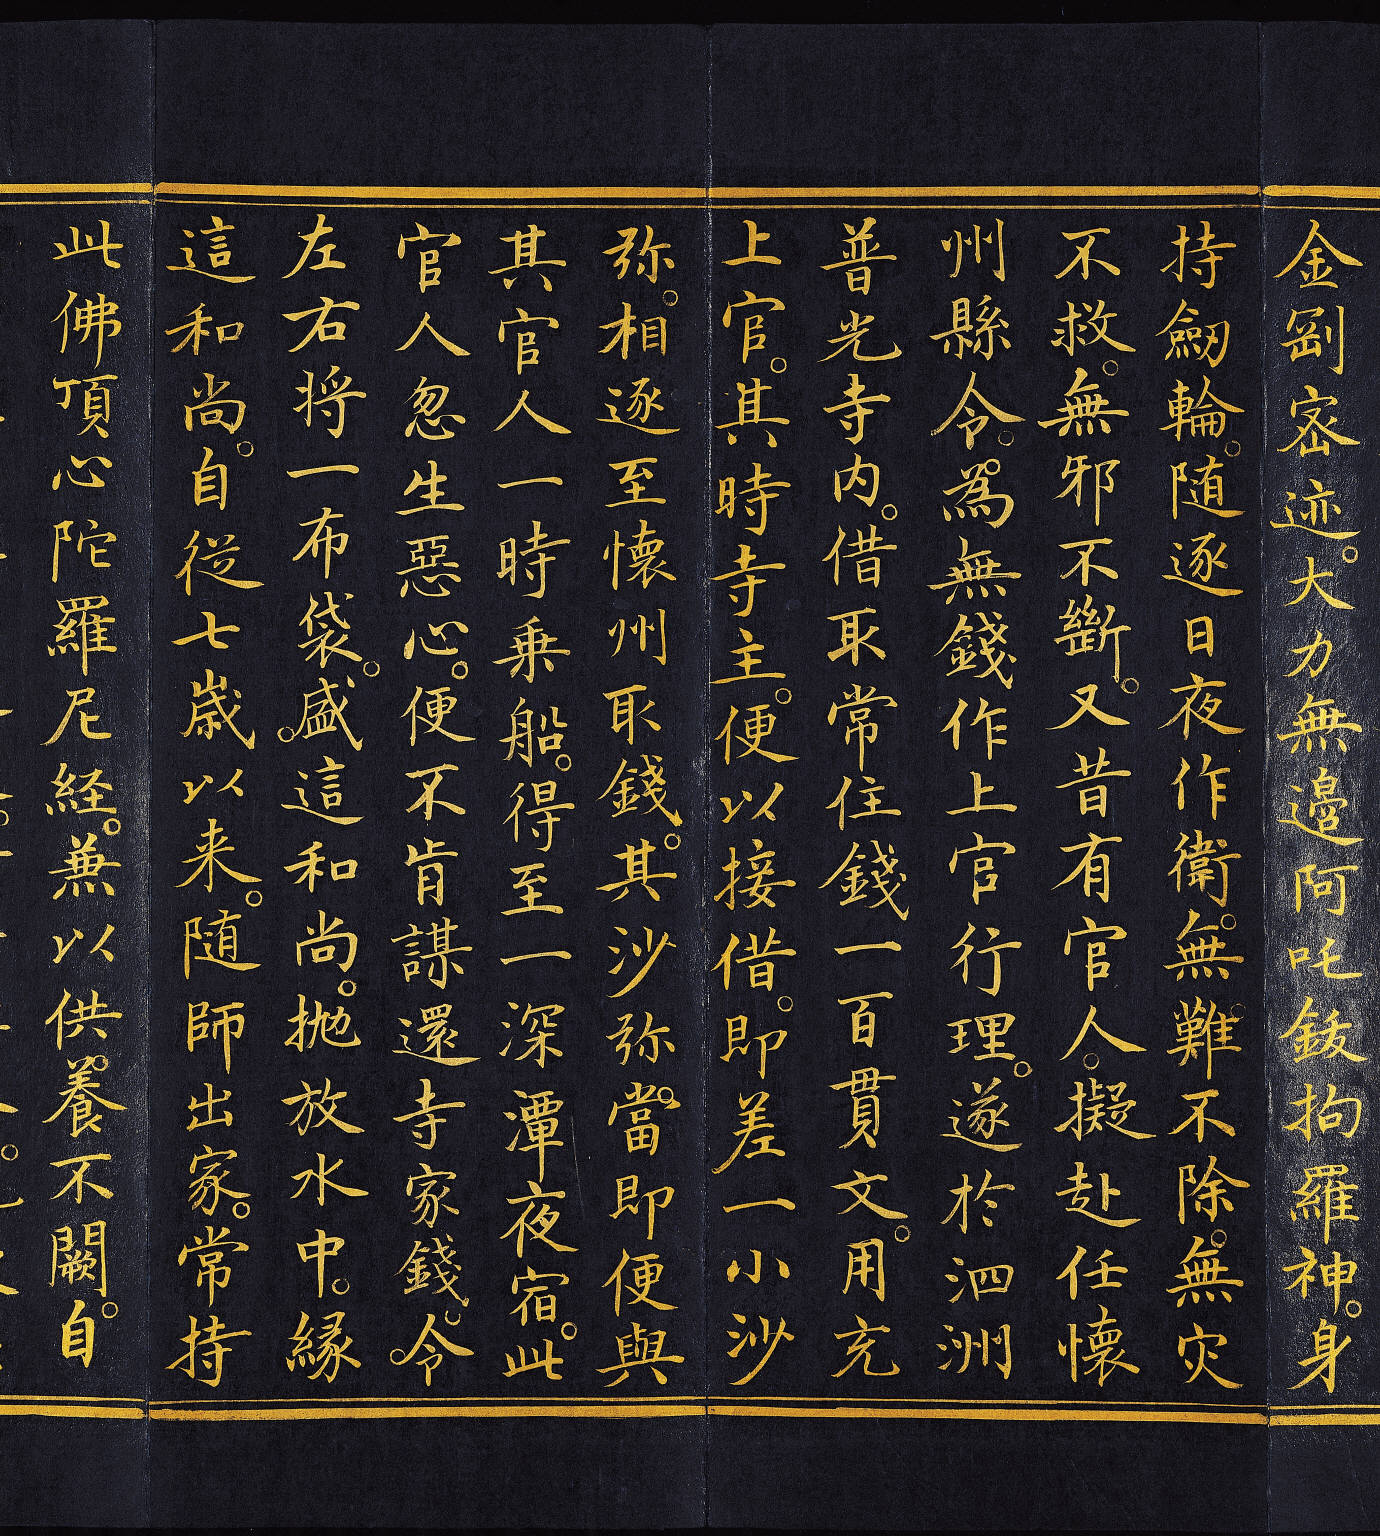 金剛密迹。大力無邊阿吒鈸拘羅神。身
持劔輪。随逐日夜作衛。無難不除。無灾
不救。無邪不斷。又昔有官人。擬赴任懷
州縣令。為無錢作上官行理。遂於泗洲
普光寺内。借取常住錢一百貫文。用充
上官。其時寺主。便以接借。即差一小沙
弥。相逐至懷州取錢。其沙弥。當即便與
其官人一時乗船。得至一深潭夜宿。此
官人忽生惡心。便不肯謀還寺家錢。令
左右将一布袋。盛這和尚。抛放水中。縁
這和尚。自從七嵗以来。随師出家。常持
此佛頂心陀羅尼経。兼以供養。不闕。自